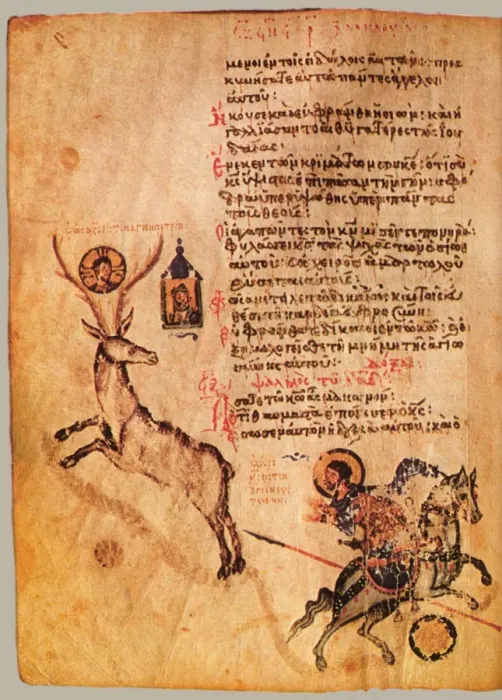 μενοι ἐν τοῖς εἰδώλοις αὐτῶν: προσ
κυνήσατε αὐτῶ πάντες ἄγγελοι
αὐτοῦ:
Ἤκουσε καὶ εὐφράνθη ἡ σιών: καὶ ἠ
γαλλιάσαντο αἱ θυγατέρες τῆς ἰου
δαίας:
Ἕνεκεν τῶν κριμάτων σου κε: ὅτι σὺ
κς ἐπὶ πᾶσαν τὴν γῆν: σφό
δρα ὑπερυψώθης ὑπὲρ πάντας
τοὺς θεούς:
Οἱ ἀγαπῶντες τὸν κν μισεῖτε πονηρά:
φυλάσσει κς τὰς ψυχὰς τῶν ὁσίων
αὐτοῦ: ἐκ χειρὸς ἁμαρτωλοῦ
ῥύσεται αὐτούς:
Φῶς ἀνέτειλε τῶ δικαίω: καὶ τοῖς εὐ
θέσι τῇ καρδία εὐφροσύνη:
Εὐφράνθητε δίκαιοι ἐν τῶ κω: καὶ ἐ
ξομολογεῖσθε τῇ μνήμη τῆς ἁγιω
σύνης αὐτοῦ: δόξα:
ψαλμὸς τῶ δαδ
Ἄσατε τῶ κω ἆσμα καινόν:
ὅτι θαυμαστὰ ἐποίησεν ὁ κς:
ἔσωσεν αὐτὸν ἡ δεξιὰ αὐτοῦ: καὶ ὁ